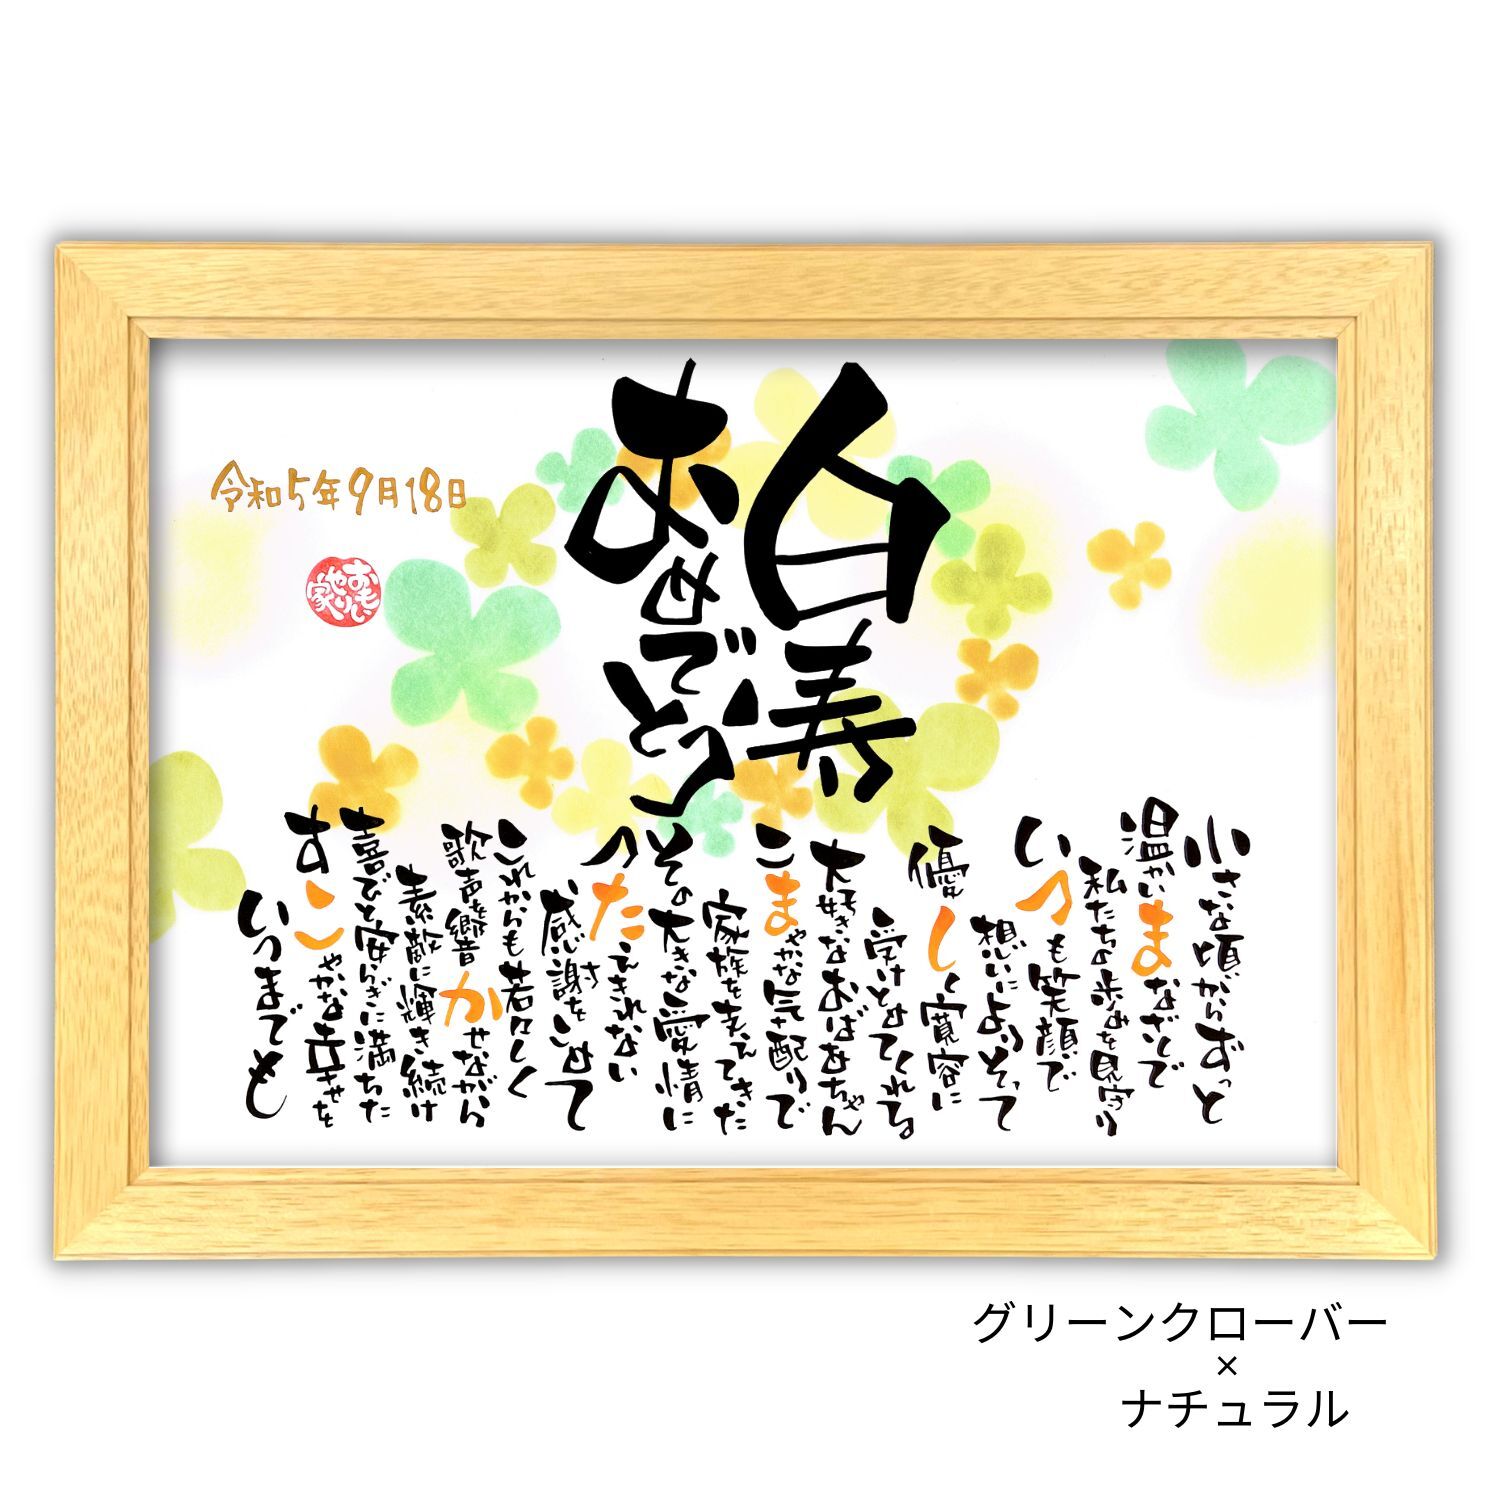 白寿
おめでとう
小さな頃からずっと
温かいまなざしで
私たちの歩みを見守り
いつも笑顔で
想いによりそって
優しく寛容に
受けとめてくれる
大好きなおばあちゃん
こまやかな気配りで
家族を支えてきた
その大きな愛情に
つたえきれない
感謝をこめて
これからも若々しく
歌声を響かせながら
素敵に輝き続け
喜びと安らぎに満ちた
すこやかな幸せを
いつまでも
令和5年9月18日
おもいやり家
グリーンクローバー
×
ナチュラル